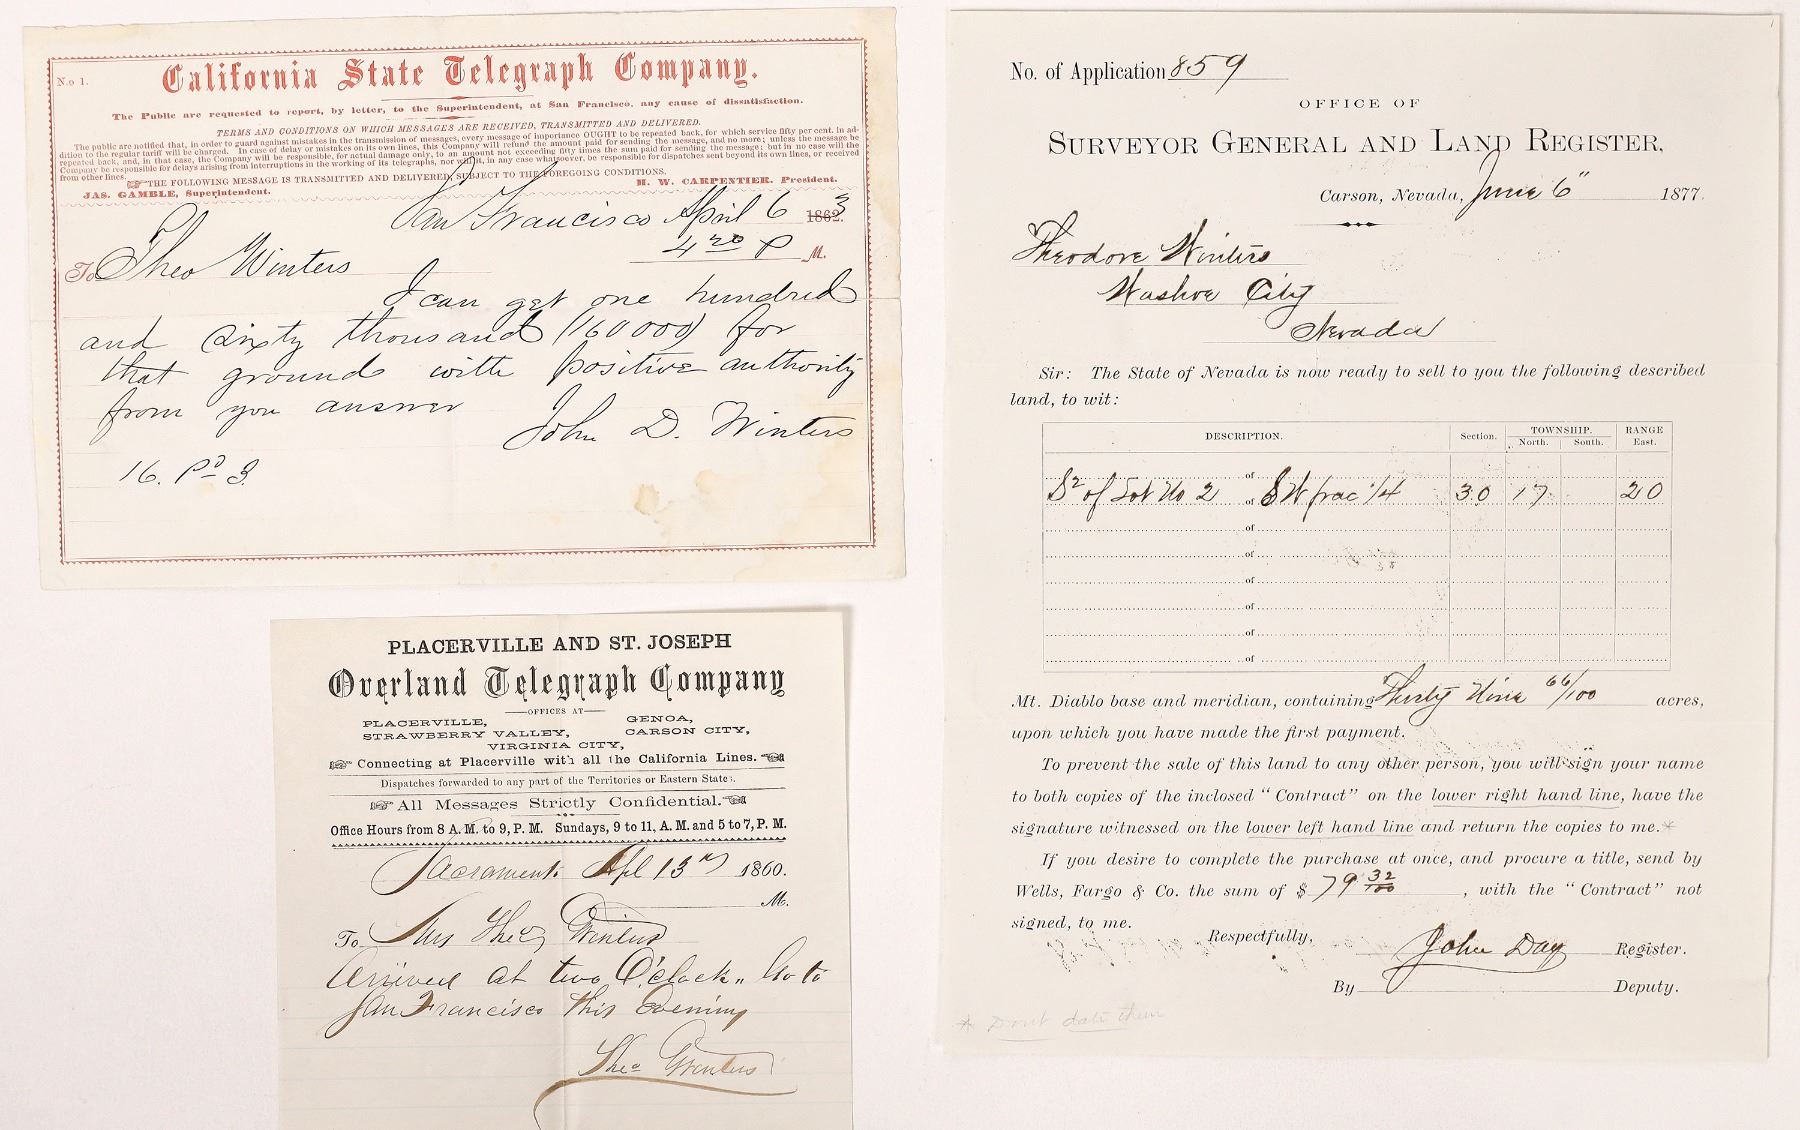 No 1.
California State Telegraph Company.
The Public are requested to report, by letter, to the Superintendent, at San Francisco, any cause of dissatisfaction.
TERMS AND CONDITIONS ON WHICH MESSAGES ARE RECEIVED, TRANSMITTED AND DELIVERED.
The public are notified that, in order to guard against mistakes in the transmission of messages, every message of importance OUGHT to be repeated back, for which service fifty per cent. in ad-
dition to the regular tariff will be charged. In case of delay or mistakes on its own lines, this Company will refund the amount paid for sending the message, and no more; unless the message be
repeated back, and, in that case, the Company will be responsible, for actual damage only, to an amount not exceeding fifty times the sum paid for sending the message; but in no case will the
Company be responsible for delays arising from interruptions in the working of its telegraphs, nor will it, in any case whatsoever, be responsible for dispatches sent beyond its own lines, or received
from other lines.
THE FOLLOWING MESSAGE IS TRANSMITTED AND DELIVERED, SUBJECT TO THE FOREGOING CONDITIONS.
JAS. GAMBLE, Superintendent. H. W. CARPENTIER, President.
San Francisco April 6 1862. 3
4 20 P M.
To Theo Winters
I can get one hundred
and sixty thousand (160000) for
that ground with positive authority
from you answer
John D. Winters
16. Pd 3
PLACERVILLE AND ST. JOSEPH
Overland Telegraph Company
OFFICES AT
PLACERVILLE, GENOA,
STRAWBERRY VALLEY, CARSON CITY,
VIRGINIA CITY,
Connecting at Placerville with all the California Lines.
Dispatches forwarded to any part of the Territories or Eastern States.
All Messages Strictly Confidential.
Office Hours from 8 A. M. to 9, P. M. Sundays, 9 to 11, A. M. and 5 to 7, P. M.
Sacramento Apl 13th 1860.
M.
To Mrs Theo Winters
Arrived at two O'clock,, Go to
San Francisco this Evening
Theo Winters
No. of Application 859
OFFICE OF
SURVEYOR GENERAL AND LAND REGISTER,
Carson, Nevada, June 6" 1877.
Theodore Winters
Washoe City
Nevada
Sir: The State of Nevada is now ready to sell to you the following described
land, to wit:
DESCRIPTION. Section. TOWNSHIP. RANGE
North. South. East.
of
S2 of Lot No 2 of SW frac 1/4 30 17 20
of
of
of
of
of
of
Mt. Diablo base and meridian, containing Thirty Nine 66/100 acres,
upon which you have made the first payment.
To prevent the sale of this land to any other person, you will sign your name
to both copies of the inclosed "Contract" on the lower right hand line, have the
signature witnessed on the lower left hand line and return the copies to me.*
If you desire to complete the purchase at once, and procure a title, send by
Wells, Fargo & Co. the sum of $ 79 32/100, with the "Contract" not
signed, to me.
Respectfully,
John Day Register.
By Deputy.
* Dont date them